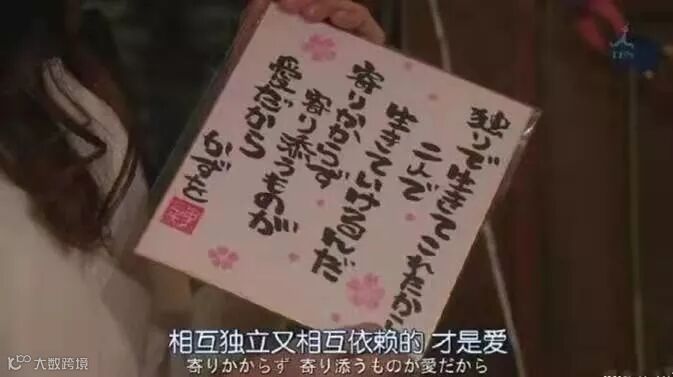 TBS
独りで生きてこれたから
二人で
生きていけるんだ
寄りかからず
寄り添うものが
愛だから
かずを
相互独立又相互依赖的 才是爱
寄りかからず 寄り添うものが愛だから
大数跨境